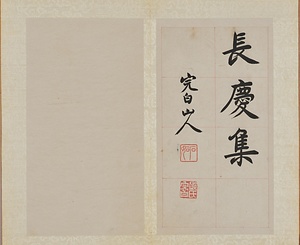 長慶集
完白山人